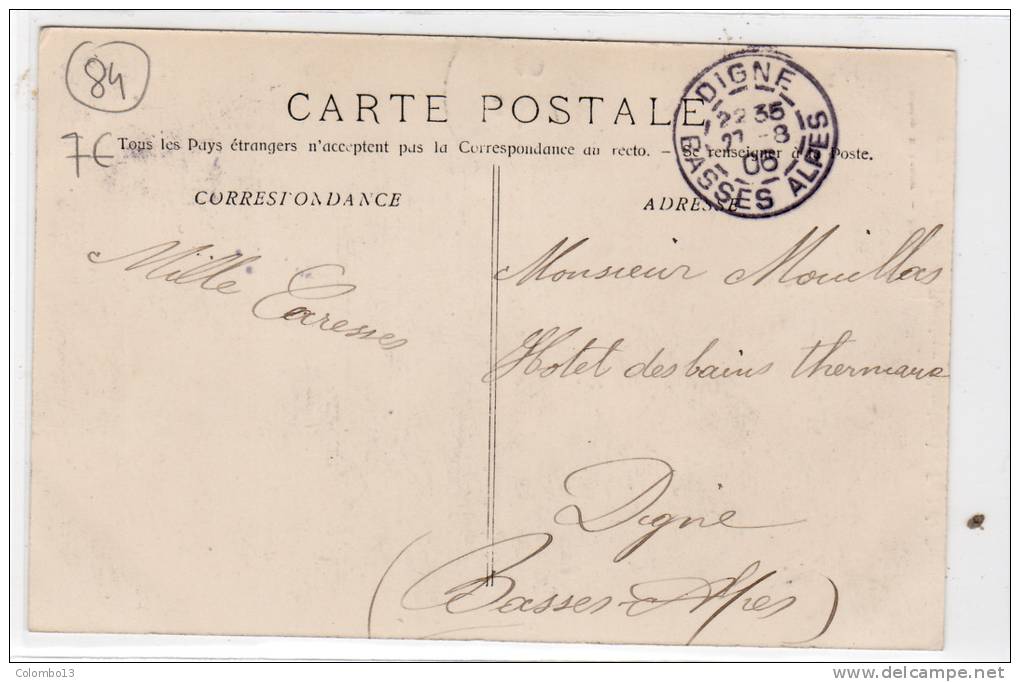 84
7€
CARTE POSTALE
Tous les Pays étrangers n'acceptent pas la Correspondance au recto. - Se renseigner à la Poste.
DIGNE
22 35
27 -8
06
BASSES ALPES
CORRESPONDANCE
ADRESSE
Mille
Caresses
Monsieur
Hotel des bains thermaux
Digne
(Basses-Alpes)
Colombo13
delcampe.net